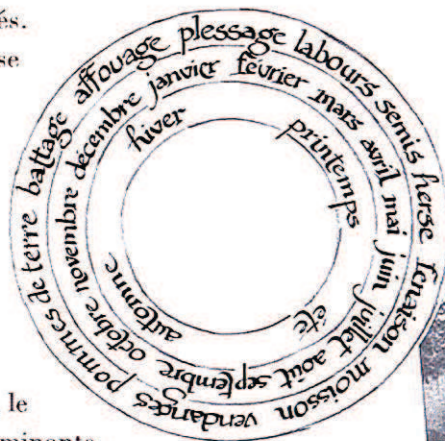 és.
se
plessage labours semis herse fenaison moisson vendanges pommes de terre battage affouage
janvier février mars avril mai juin juillet août septembre octobre novembre décembre
hiver printemps été automne
le
minante